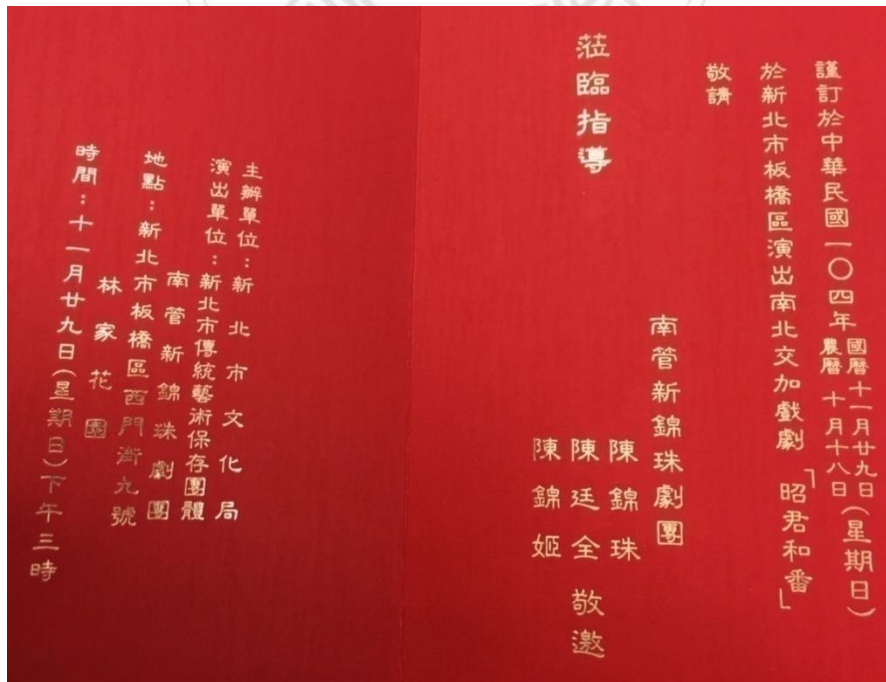 謹訂於中華民國一〇四年國曆十一月廿九日農曆十月十八日(星期日)
於新北市板橋區演出南北交加戲劇「昭君和番」
敬請
蒞臨指導
南管新錦珠劇團
陳錦珠
陳廷全 敬邀
陳錦姬
主辦單位:新北市文化局
演出單位:新北市傳統藝術保存團體
南管新錦珠劇團
地點:新北市板橋區西門街九號
林家花園
時間:十一月廿九日(星期日)下午三時